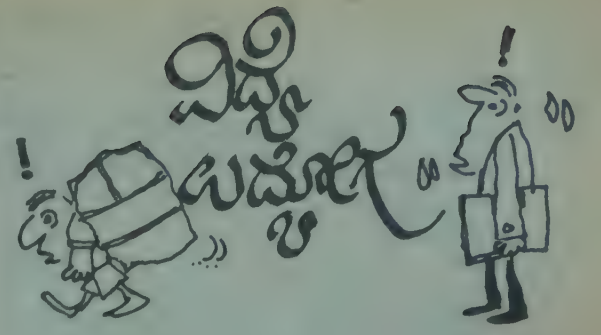 ವಿದ್ಯೆ
ಉದ್ಯೋಗ